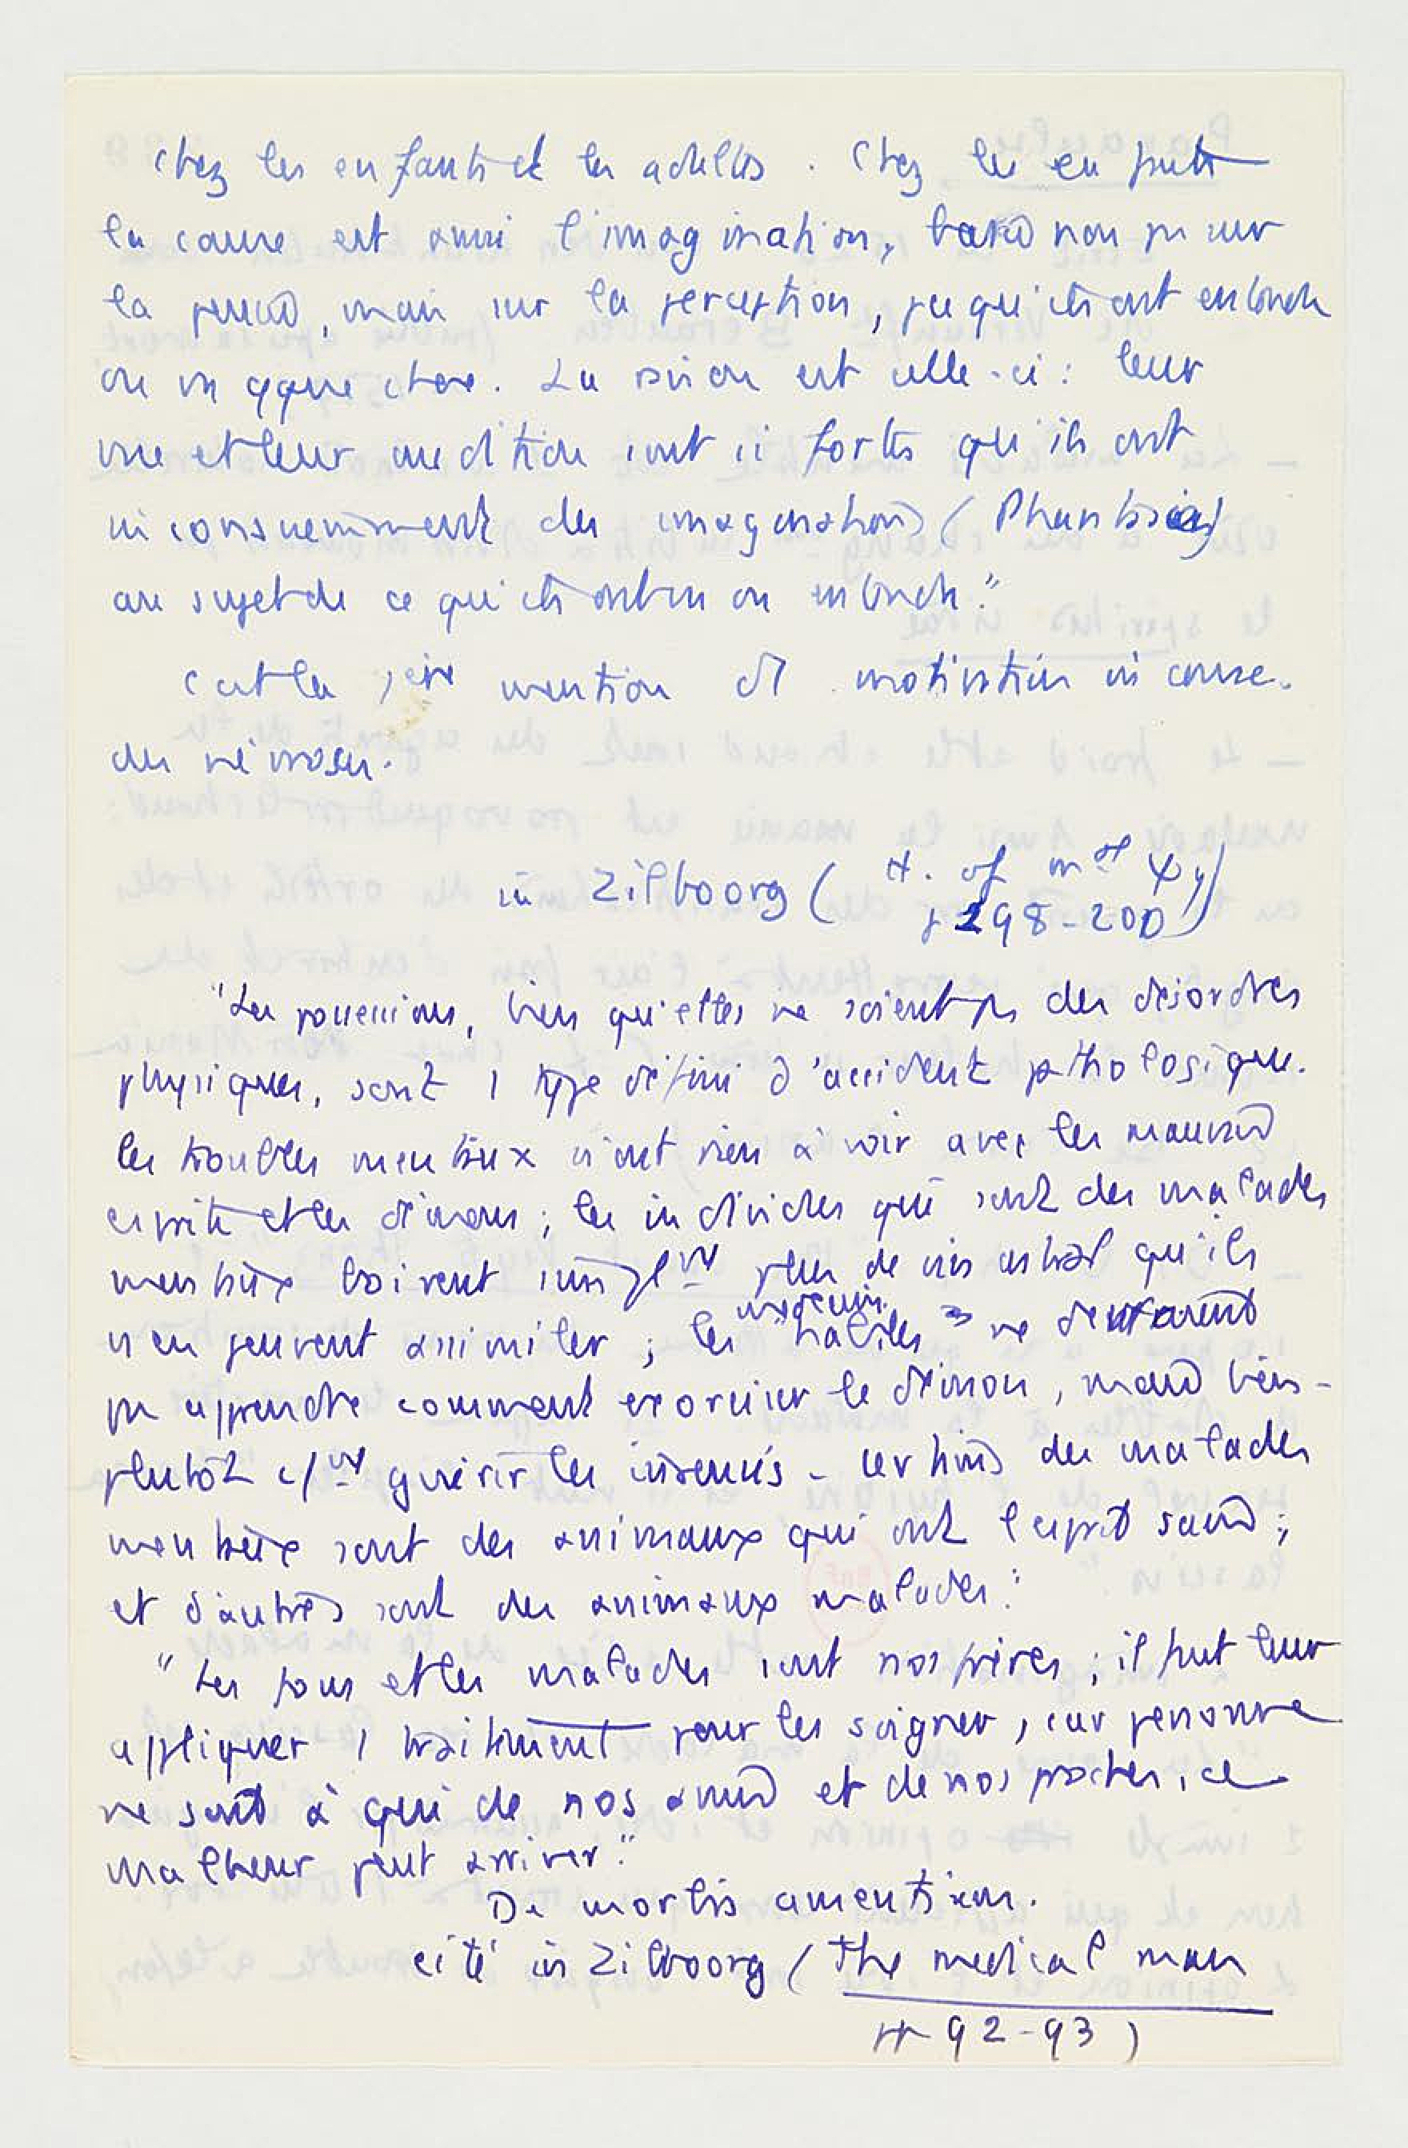 chez les enfants et les adultes. Chez les enfants
la cause est aussi l'imagination, basée non pas sur
la pensée, mais sur la perception, pcq qu'ils ont entendu
ou vu qque chose. La raison est celle-ci : leur
vue et leur audition sont si fortes qu'ils ont
inconsciemment des imaginations (Phantasies)
au sujet de ce qu'ils ont vu ou entendu."
C'est la 1ère mention de motivation inconsc.
des névroses.
in Zilboorg (H. of mal ψy
p 198-200)
"Les possessions, bien qu'elles ne soient pas des désordres
physiques, sont 1 type défini d'accident pathologique.
les troubles mentaux n'ont rien à voir avec les mauvais
esprits et les démons ; les individus qui sont des malades
mentaux boivent simplnt plus de vin astral qu'ils
n'en peuvent assimiler ; les médecins "habiles" ne devraient
pas apprendre comment exorciser le démon, mais bien -
plutôt cmnt guérir les insensés - certains des malades
mentaux sont des animaux qui ont l'esprit sain ;
et d'autres sont des animaux malades."
"Les fous et les malades sont nos frères ; il faut leur
appliquer 1 traitement pour les soigner, car personne
ne sait à qui de nos amis et de nos proches, ce
malheur peut arriver."
De morbis amentium.
cité in Zilboorg (The medical man
pp 92-93)